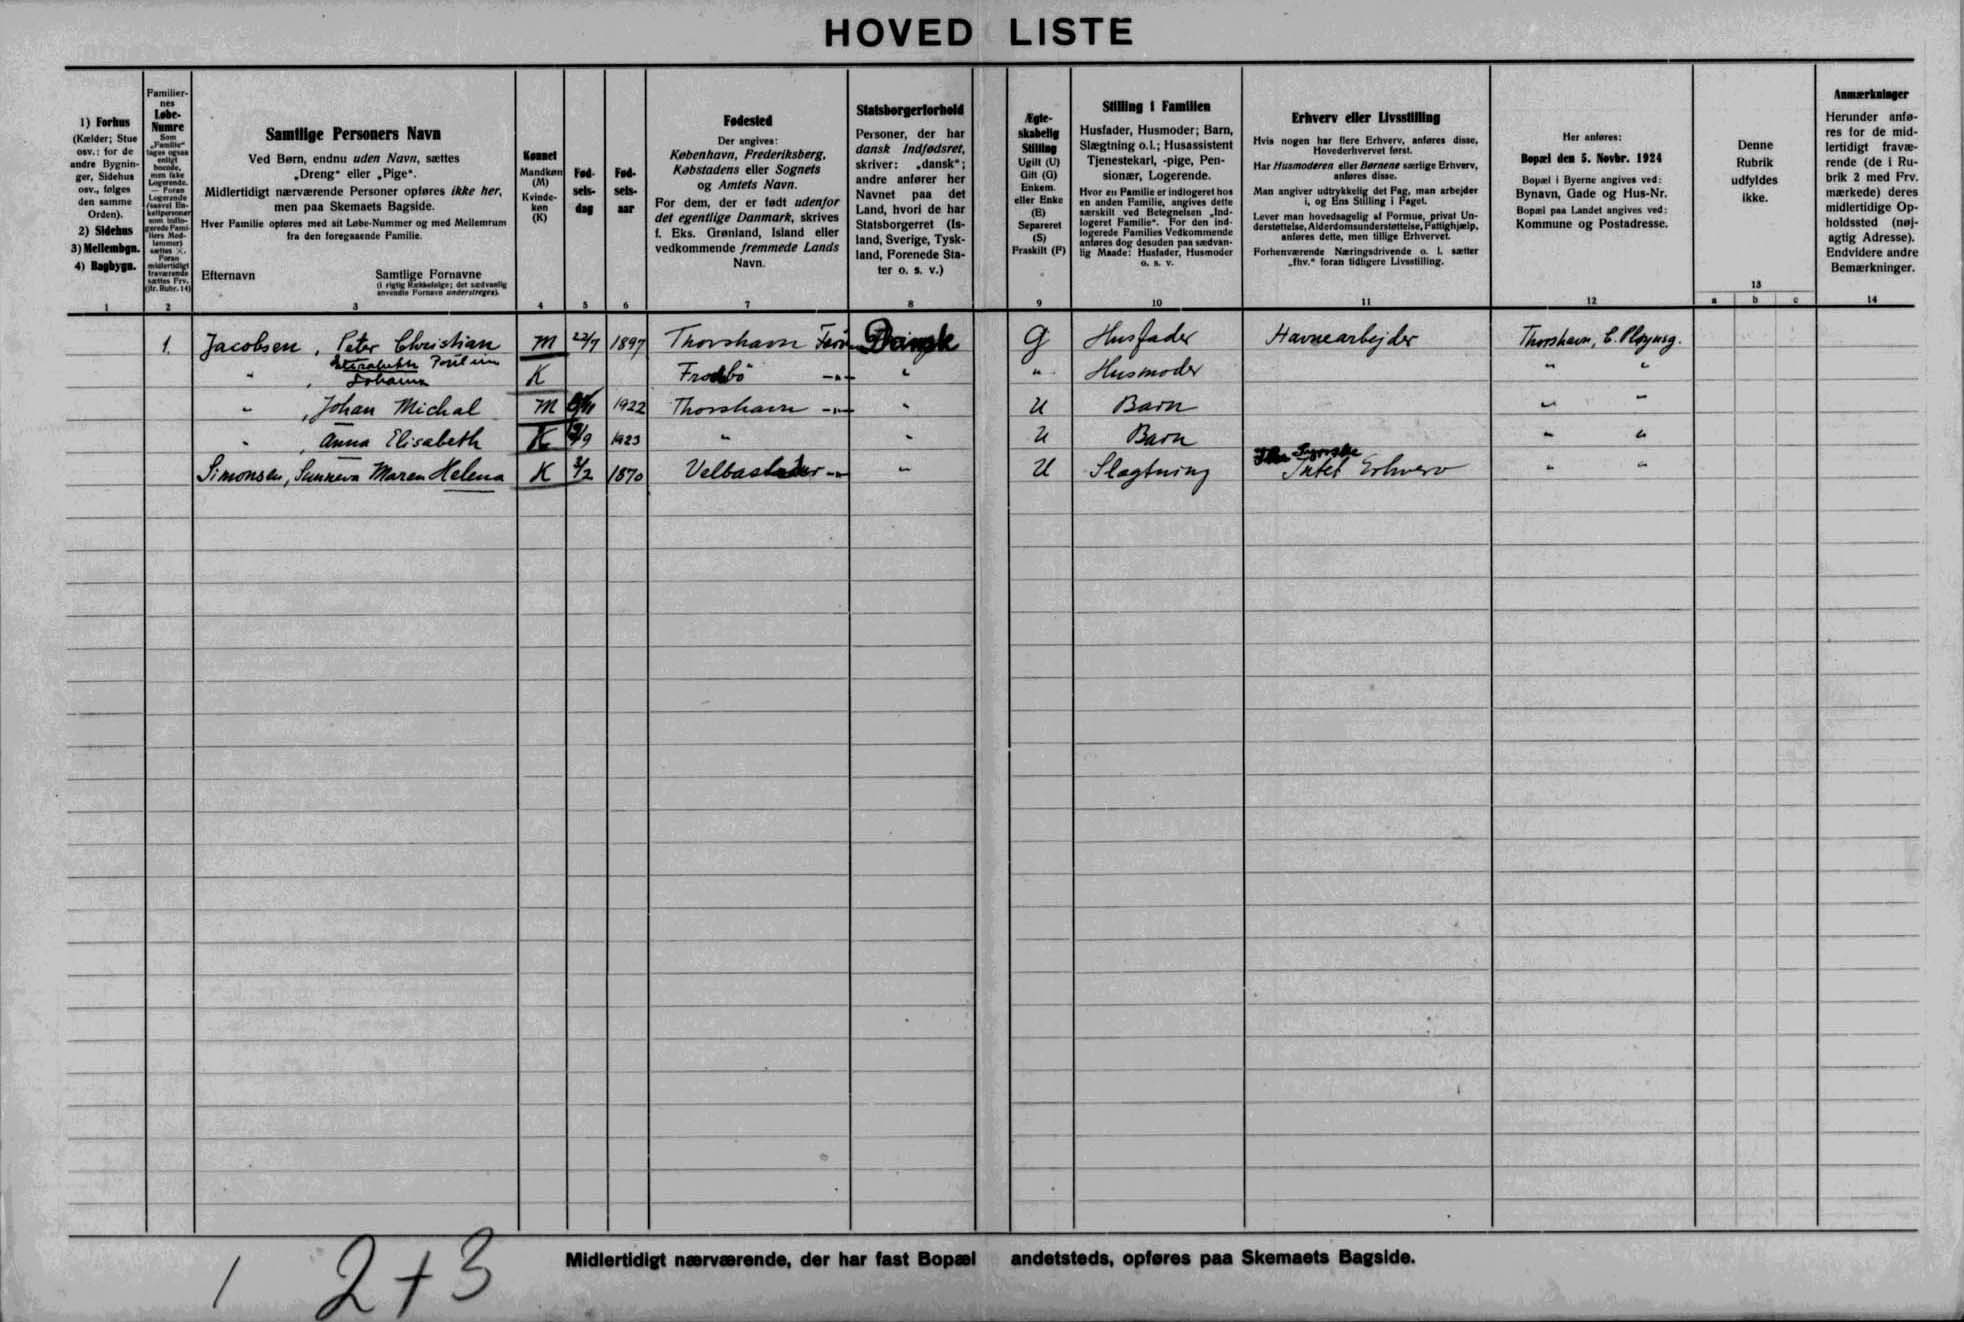 HOVED LISTE
1) Forhus
(Kælder; Stue
osv.: for de
andre Bygnin-
ger, Sidehus
osv., følges
den samme
Orden).
2) Sidehus
3) Mellembgn.
4) Bagbygn.
1
Familier-
nes
Løbe-
Numre
2
Samtlige Personers Navn
Ved Børn, endnu uden Navn, sættes
„Dreng“ eller „Pige“.
Midlertidigt nærværende Personer opføres ikke her,
men paa Skemaets Bagside.
Hver Familie opføres med sit Løbe-Nummer og med Mellemrum
fra den foregaaende Familie.
Efternavn
Samtlige Fornavne
(i rigtig Rækkefølge; det sædvanlig
anvendte Fornavn understreges).
3
Kønnet
Mandkøn
(M)
Kvinde-
køn
(K)
4
Fød-
sels-
dag
5
Fød-
sels-
aar
6
Fødested
Der angives:
København, Frederiksberg,
Købstadens eller Sognets
og Amtets Navn.
For dem, der er født udenfor
det egentlige Danmark, skrives
f. Eks. Grønland, Island eller
vedkommende fremmede Lands
Navn.
7
Statsborgerforhold
Personer, der har
dansk Indfødsret,
skriver: „dansk“;
andre anfører her
Navnet paa det
Land, hvori de har
Statsborgerret (Is-
land, Sverige, Tysk-
land, Forenede Sta-
ter o. s. v.)
8
Ægte-
skabelig
Stilling
Ugift (U)
Gift (G)
Enkem.
eller Enke
(E)
Separeret
(S)
Fraskilt (F)
9
Stilling i Familien
Husfader, Husmoder; Barn,
Slægtning o.l.; Husassistent
Tjenestekarl, -pige, Pen-
sionær, Logerende.
Hvor en Familie er indlogeret hos
en anden Familie, angives dette
særskilt ved Betegnelsen „Ind-
logeret Familie“. For den ind-
logerede Families Vedkommende
anføres dog desuden paa sædvan-
lig Maade: Husfader, Husmoder
o. s. v.
10
Erhverv eller Livsstilling
Hvis nogen har flere Erhverv, anføres disse,
Hovederhvervet først.
Har Husmoderen eller Børnene særlige Erhverv,
anføres disse.
Man angiver udtrykkelig det Fag, man arbejder
i, og Ens Stilling i Faget.
Lever man hovedsagelig af Formue, privat Un-
derstøttelse, Alderdomsunderstøttelse, Fattighjælp,
anføres dette, men tillige Erhvervet.
Forhenværende Næringsdrivende o. l. sætter
„fhv.“ foran tidligere Livsstilling.
11
Her anføres:
Bopæl den 5. Novbr. 1924
Bopæl i Byerne angives ved:
Bynavn, Gade og Hus-Nr.
Bopæl paa Landet angives ved:
Kommune og Postadresse.
12
Denne
Rubrik
udfyldes
ikke.
13
a b c
Anmærkninger
Herunder anfø-
res for de mid-
lertidigt fravæ-
rende (de i Ru-
brik 2 med Frv.
mærkede) deres
midlertidige Op-
holdssted (nøj-
agtig Adresse).
Endvidere andre
Bemærkninger.
14
1. Jacobsen, Peter Christian M 22/7 1897 Thorshavn Dansk G Husfader Havnearbejder Thorshavn,
" , Johanna K Frodbø —"— " " Husmoder " "
" , Johan Michal M 1922 Thorshavn —"— " U Barn " "
" , Anna Elisabeth K 1923 " " U Barn " "
Simonsen, Sunneva Maren Helena K 2/2 1870 —"— " U Slægtning Intet Erhverv " "
Midlertidigt nærværende, der har fast Bopæl andetsteds, opføres paa Skemaets Bagside.
1 2+3